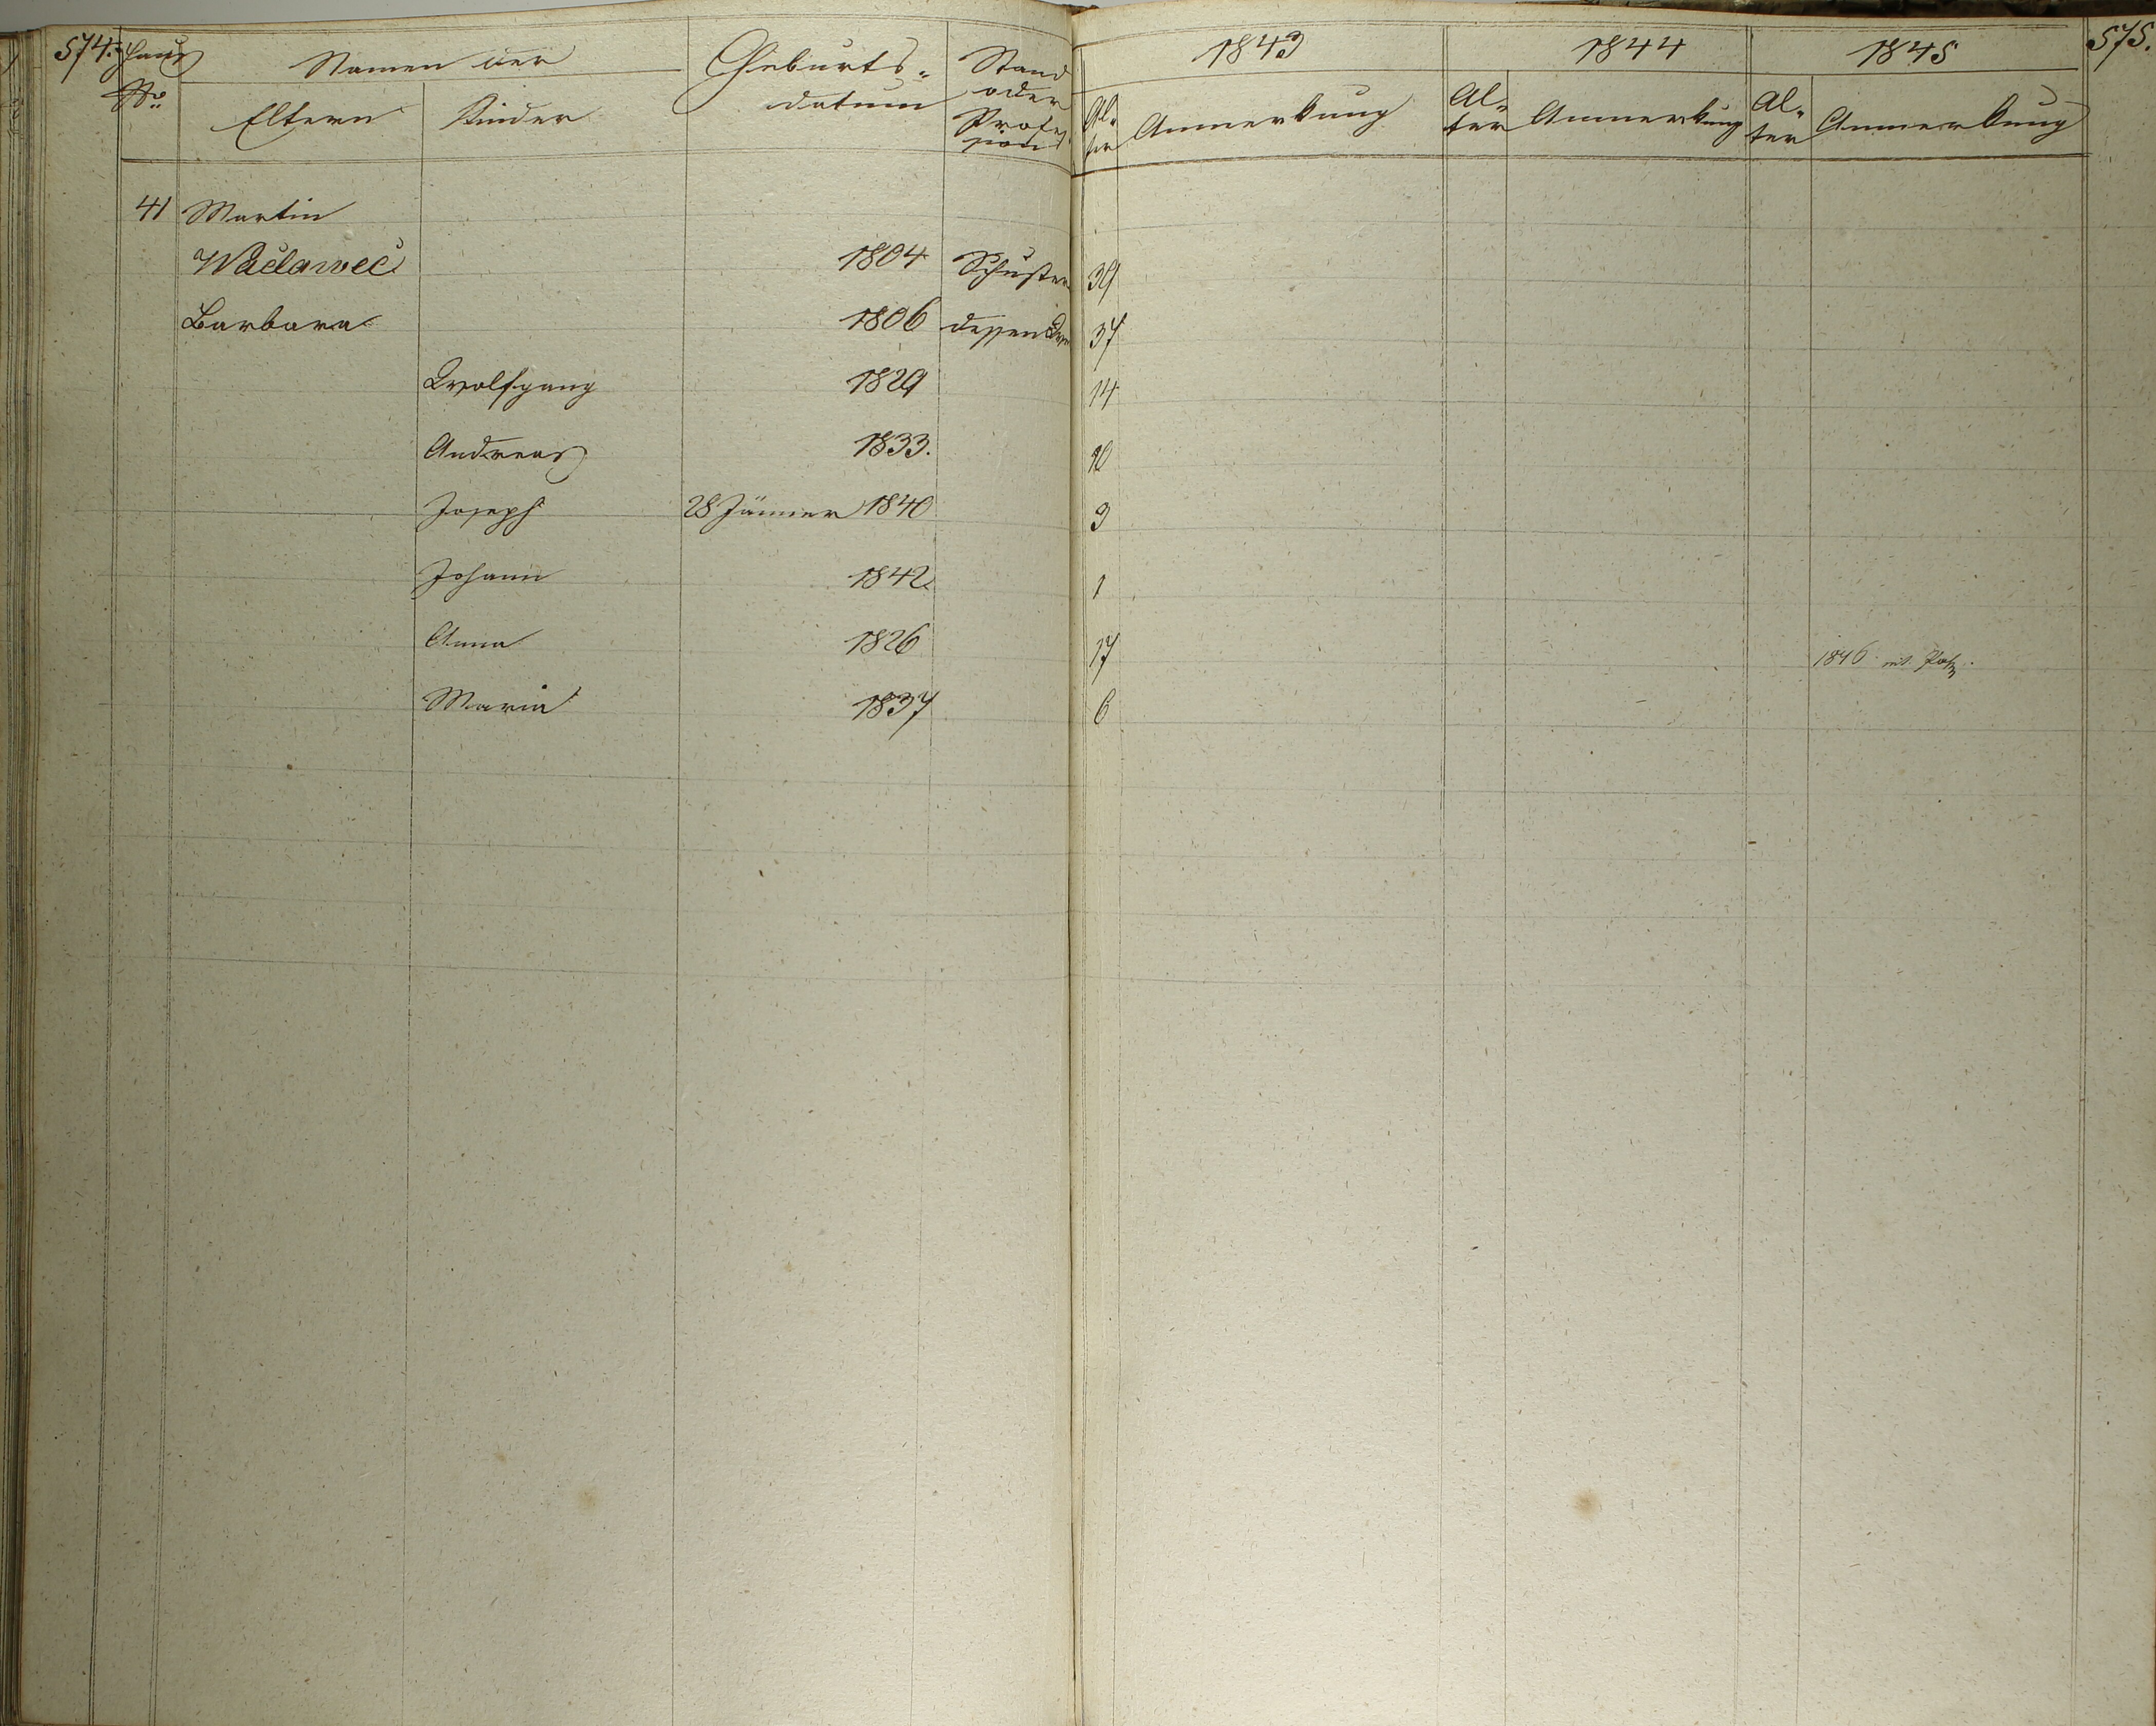 574. Haus Namen der Geburts= Stand 1843 1844 1845 575.
No. Eltern Kinder datum oder Profes sion Al= ter Anmerkung Al= ter Anmerkung Al= ter Anmerkung
41 Martin
Waclawec 1804 Schuster 39
Barbara 1806 dessen 37
Wolfgang 1829 14
Andreas 1833. 10
Joseph 28 Jänner 1840 3
Johann 1842 1
Anna 1826 17 1846
Maria 1837 6